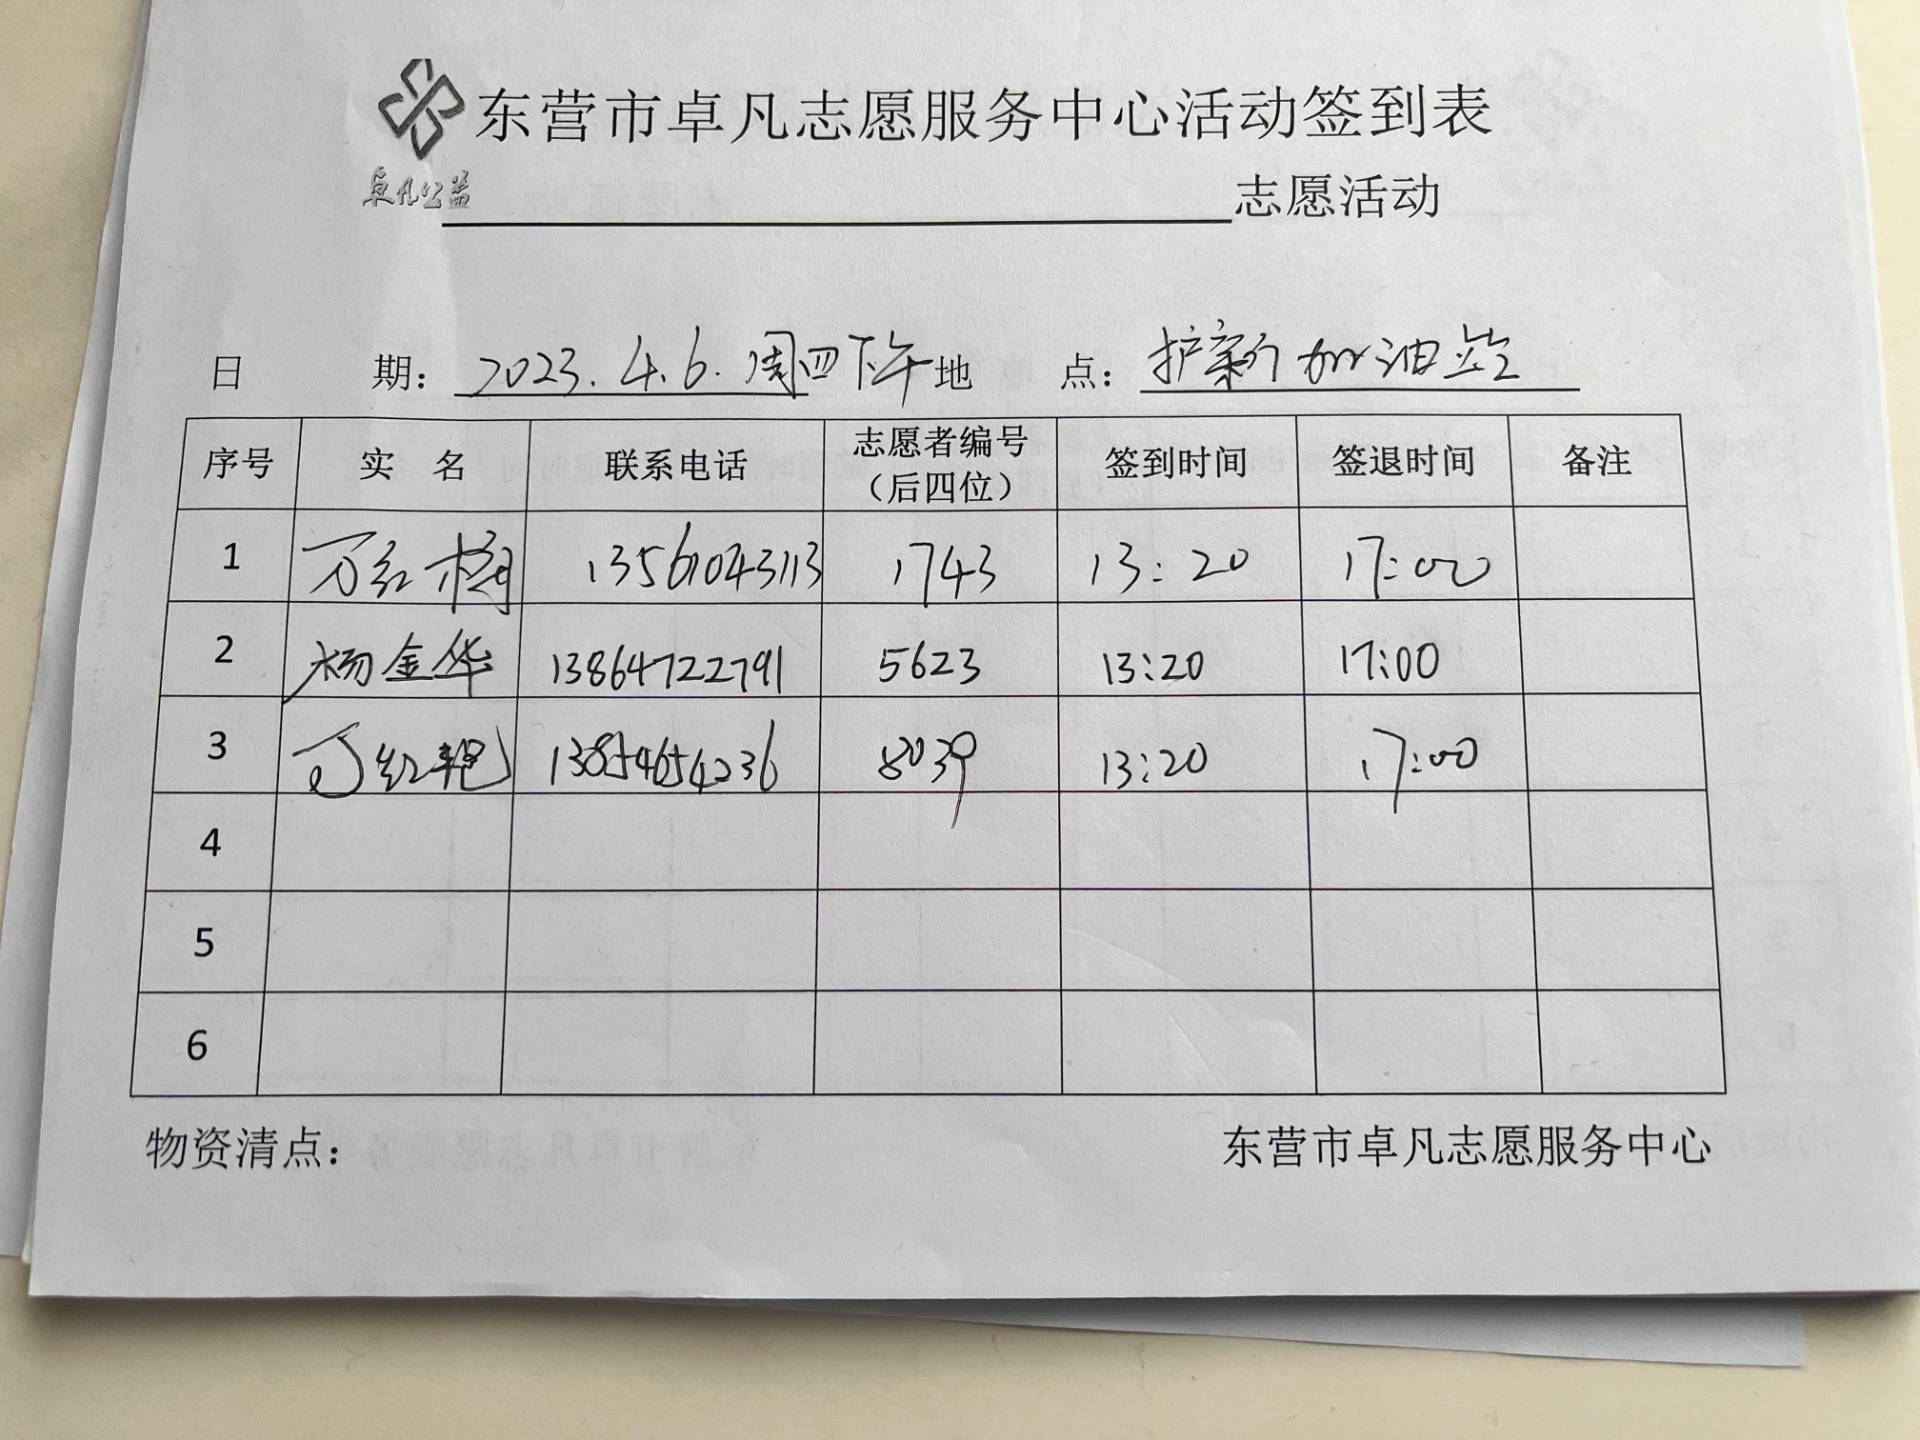 东营市卓凡志愿服务中心活动签到表
卓凡公益
志愿活动
日 期：2023.4.6.周四下午 地 点：护新加油笠
序号 实 名 联系电话 志愿者编号（后四位） 签到时间 签退时间 备注
1 万红梅 13561043113 1743 13:20 17:00
2 杨金华 13864722791 5623 13:20 17:00
3 红艳 13854654236 8039 13:20 17:00
4
5
6
物资清点： 东营市卓凡志愿服务中心